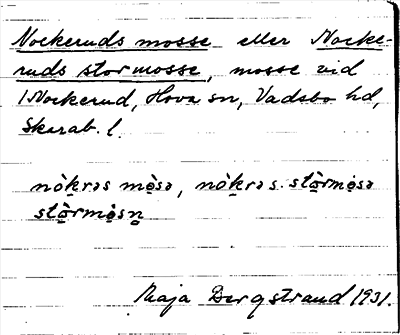 Nockeruds mosse eller Nocke-
ruds stormosse, mosse vid
Nockerud, Hova sn, Vadsbo hd,
Skarab. l.
nòkrəs mo̢sə, nòkrəs. stòrmo̢sə
stòrmo̢sn̥
Maja Bergstrand 1931.